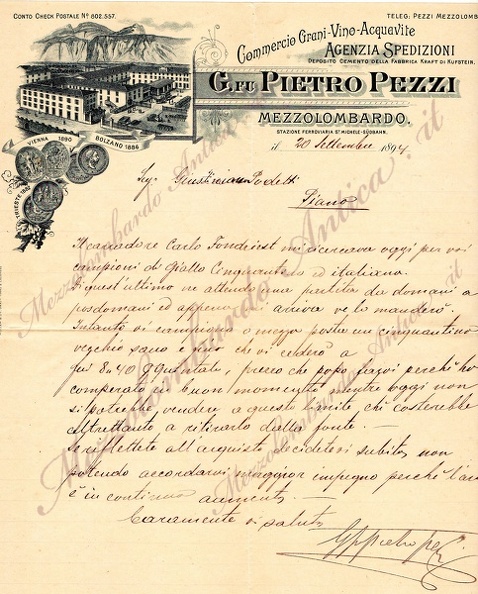 CONTO CHECK POSTALE Nº 802.557.
TELEG: PEZZI MEZZOLOMB
Commercio Grani-Vino-Acquavite
AGENZIA SPEDIZIONI
DEPOSITO CEMENTO DELLA FABBRICA KRAFT DI KUFSTEIN.
G. FU PIETRO PEZZI
MEZZOLOMBARDO.
STAZIONE FERROVIARIA St MICHELE-SÜDBAHN.
VIENNA 1890
BOLZANO 1886
TRIESTE 188
il 20 Settembre 1894
Sig. Giustiniano Podetti
Piano
Il cavadore Carlo Fondriest mi ricercava oggi per voi
campioni di Giallo Cinquantino ed italiano.
Di quest'ultimo ne attendo una partita da domani a
posdomani ed appena mi arriva ve lo manderò.
Intanto vi campiono a mezzo posta un cinquantino
vecchio sano e che vi cederò a
8.40 Quintale, prezzo che popo farvi perchè ho
comperato in buon momento mentre oggi non
si potrebbe vendere a questo limite chi costerebbe
altrettanto a ritirarlo dalla fonte. —
Se riflettete all'acquisto decidetevi subito, non
potendo accordarvi maggior impegno perchè
è in continuo aumento. —
Caramente vi saluto
Mezzolombardo Antica.it
Mezzolombardo Antica.it
Mezzolombardo Antica.it